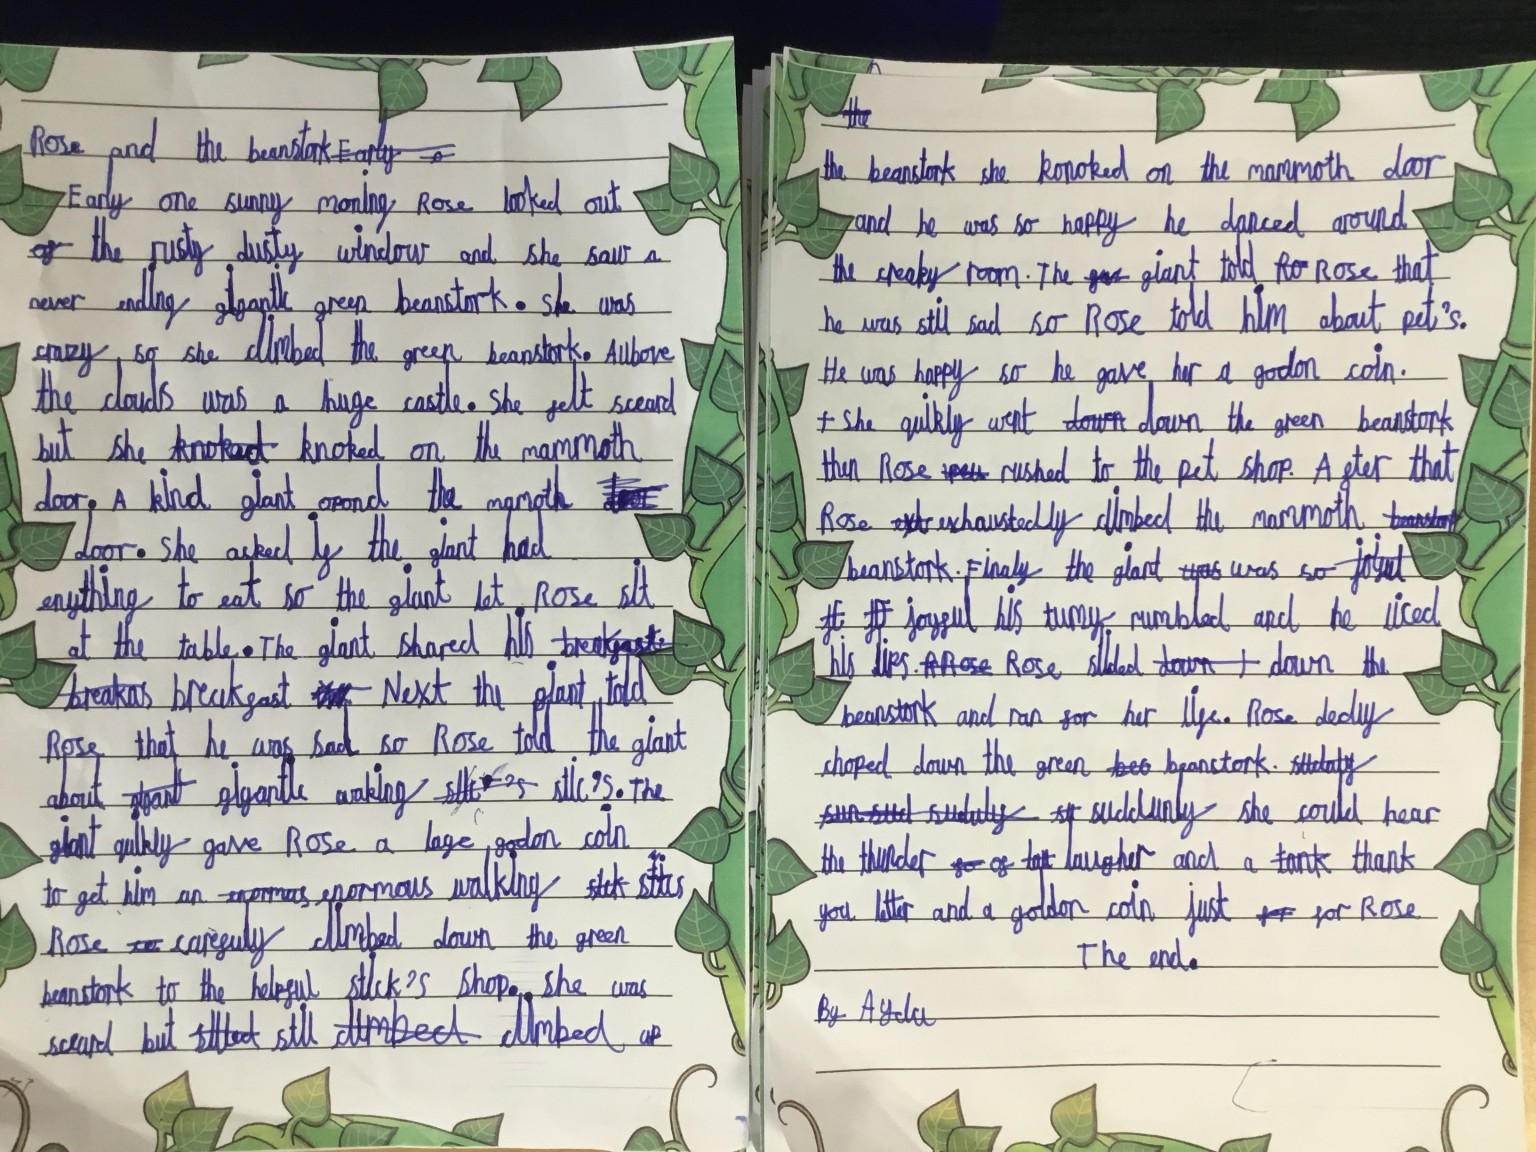 Rose and the beanstork Early a
Early one sunny moning Rose looked out
of the rusty dusty window and she saw a
never ending gigantic green beanstork. She was
crazy so she climbed the green beanstork. Aubove
the clouds was a huge castle. She felt sceard
but she knoked on the mammoth
door. A kind giant opond the mamoth
door. She asked if the giant had
enything to eat so the giant let Rose sit
at the table. The giant shared his breakfast.
breakas breakfast Next the giant told
Rose that he was sad so Rose told the giant
about giant gigantic waking stic's. The
giant quikly gave Rose a lage godon coin
to get him an enormas enormous walking stick stics
Rose carefuly climbed down the green
beanstork to the helpful stick's shop. She was
sceard but still climbed climbed up
the
the beanstork she konoked on the mammoth door
and he was so happy he danced around
the creaky room. The giant told Ro Rose that
he was still sad so Rose told him about pet's.
He was happy so he gave her a godon coin.
She quikly went down down the green beanstork
then Rose rushed to the pet shop. A fter that
Rose ext exhaustedly climbed the mammoth beanstor
beanstork. Finaly the giant was was so joyul
joyful his tumy rumbled and he liced
his lips. ARose Rose slided down down the
beanstork and ran for her life. Rose dedly
choped down the green bea beanstork.
suddunly she could hear
the thunder laugher and a tank thank
you letter and a goldon coin just for for Rose
The end.
By Ayda